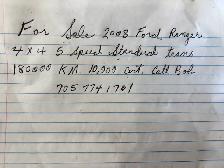 For Sale 2008 Ford Ranger
4x4 5 Speed Standard trans
180000 KM 10,900 Call Bob
705 774 1701